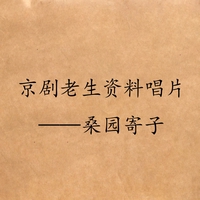 京剧老生资料唱片
——桑园寄子